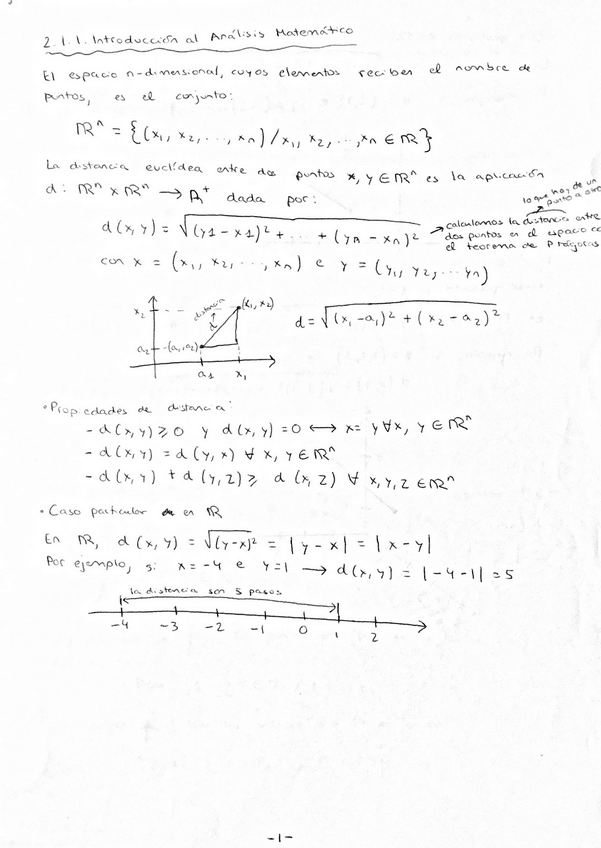 2.1.1. Introducción al Análisis Matemático
El espacio n-dimensional, cuyos elementos reciben el nombre de
puntos, es el conjunto:
ℝⁿ = {(x₁, x₂, ..., xₙ) / x₁, x₂, ..., xₙ ∈ ℝ}
La distancia euclídea entre dos puntos x, y ∈ ℝⁿ es la aplicación
d: ℝⁿ x ℝⁿ → ℝ⁺ dada por:
lo que hay de un
punto a otro
d(x, y) = √((y1 - x1)² + ... + (yₙ - xₙ)²
→ calculamos la distancia entre
dos puntos en el espacio co
el teorema de Pitágoras
con x = (x₁, x₂, ..., xₙ) e y = (y₁, y₂, ... yₙ)
x₂ distancia (x₁, x₂)
d = √((x₁ - a₁)² + (x₂ - a₂)²)
a₂ (a₁, a₂)
a1 x₁
• Propiedades de distancia:
- d(x, y) ≥ 0 y d(x, y) = 0 ⟷ x = y ∀x, y ∈ ℝⁿ
- d(x, y) = d(y, x) ∀ x, y ∈ ℝⁿ
- d(x, y) + d(y, z) ≥ d(x, z) ∀ x, y, z ∈ ℝⁿ
• Caso particular en ℝ
En ℝ, d(x, y) = √(y-x)² = |y - x| = |x - y|
Por ejemplo, si x = -4 e y = 1 → d(x, y) = |-4 - 1| = 5
la distancia son 5 pasos
-4 -3 -2 -1 0 1 2
-1-